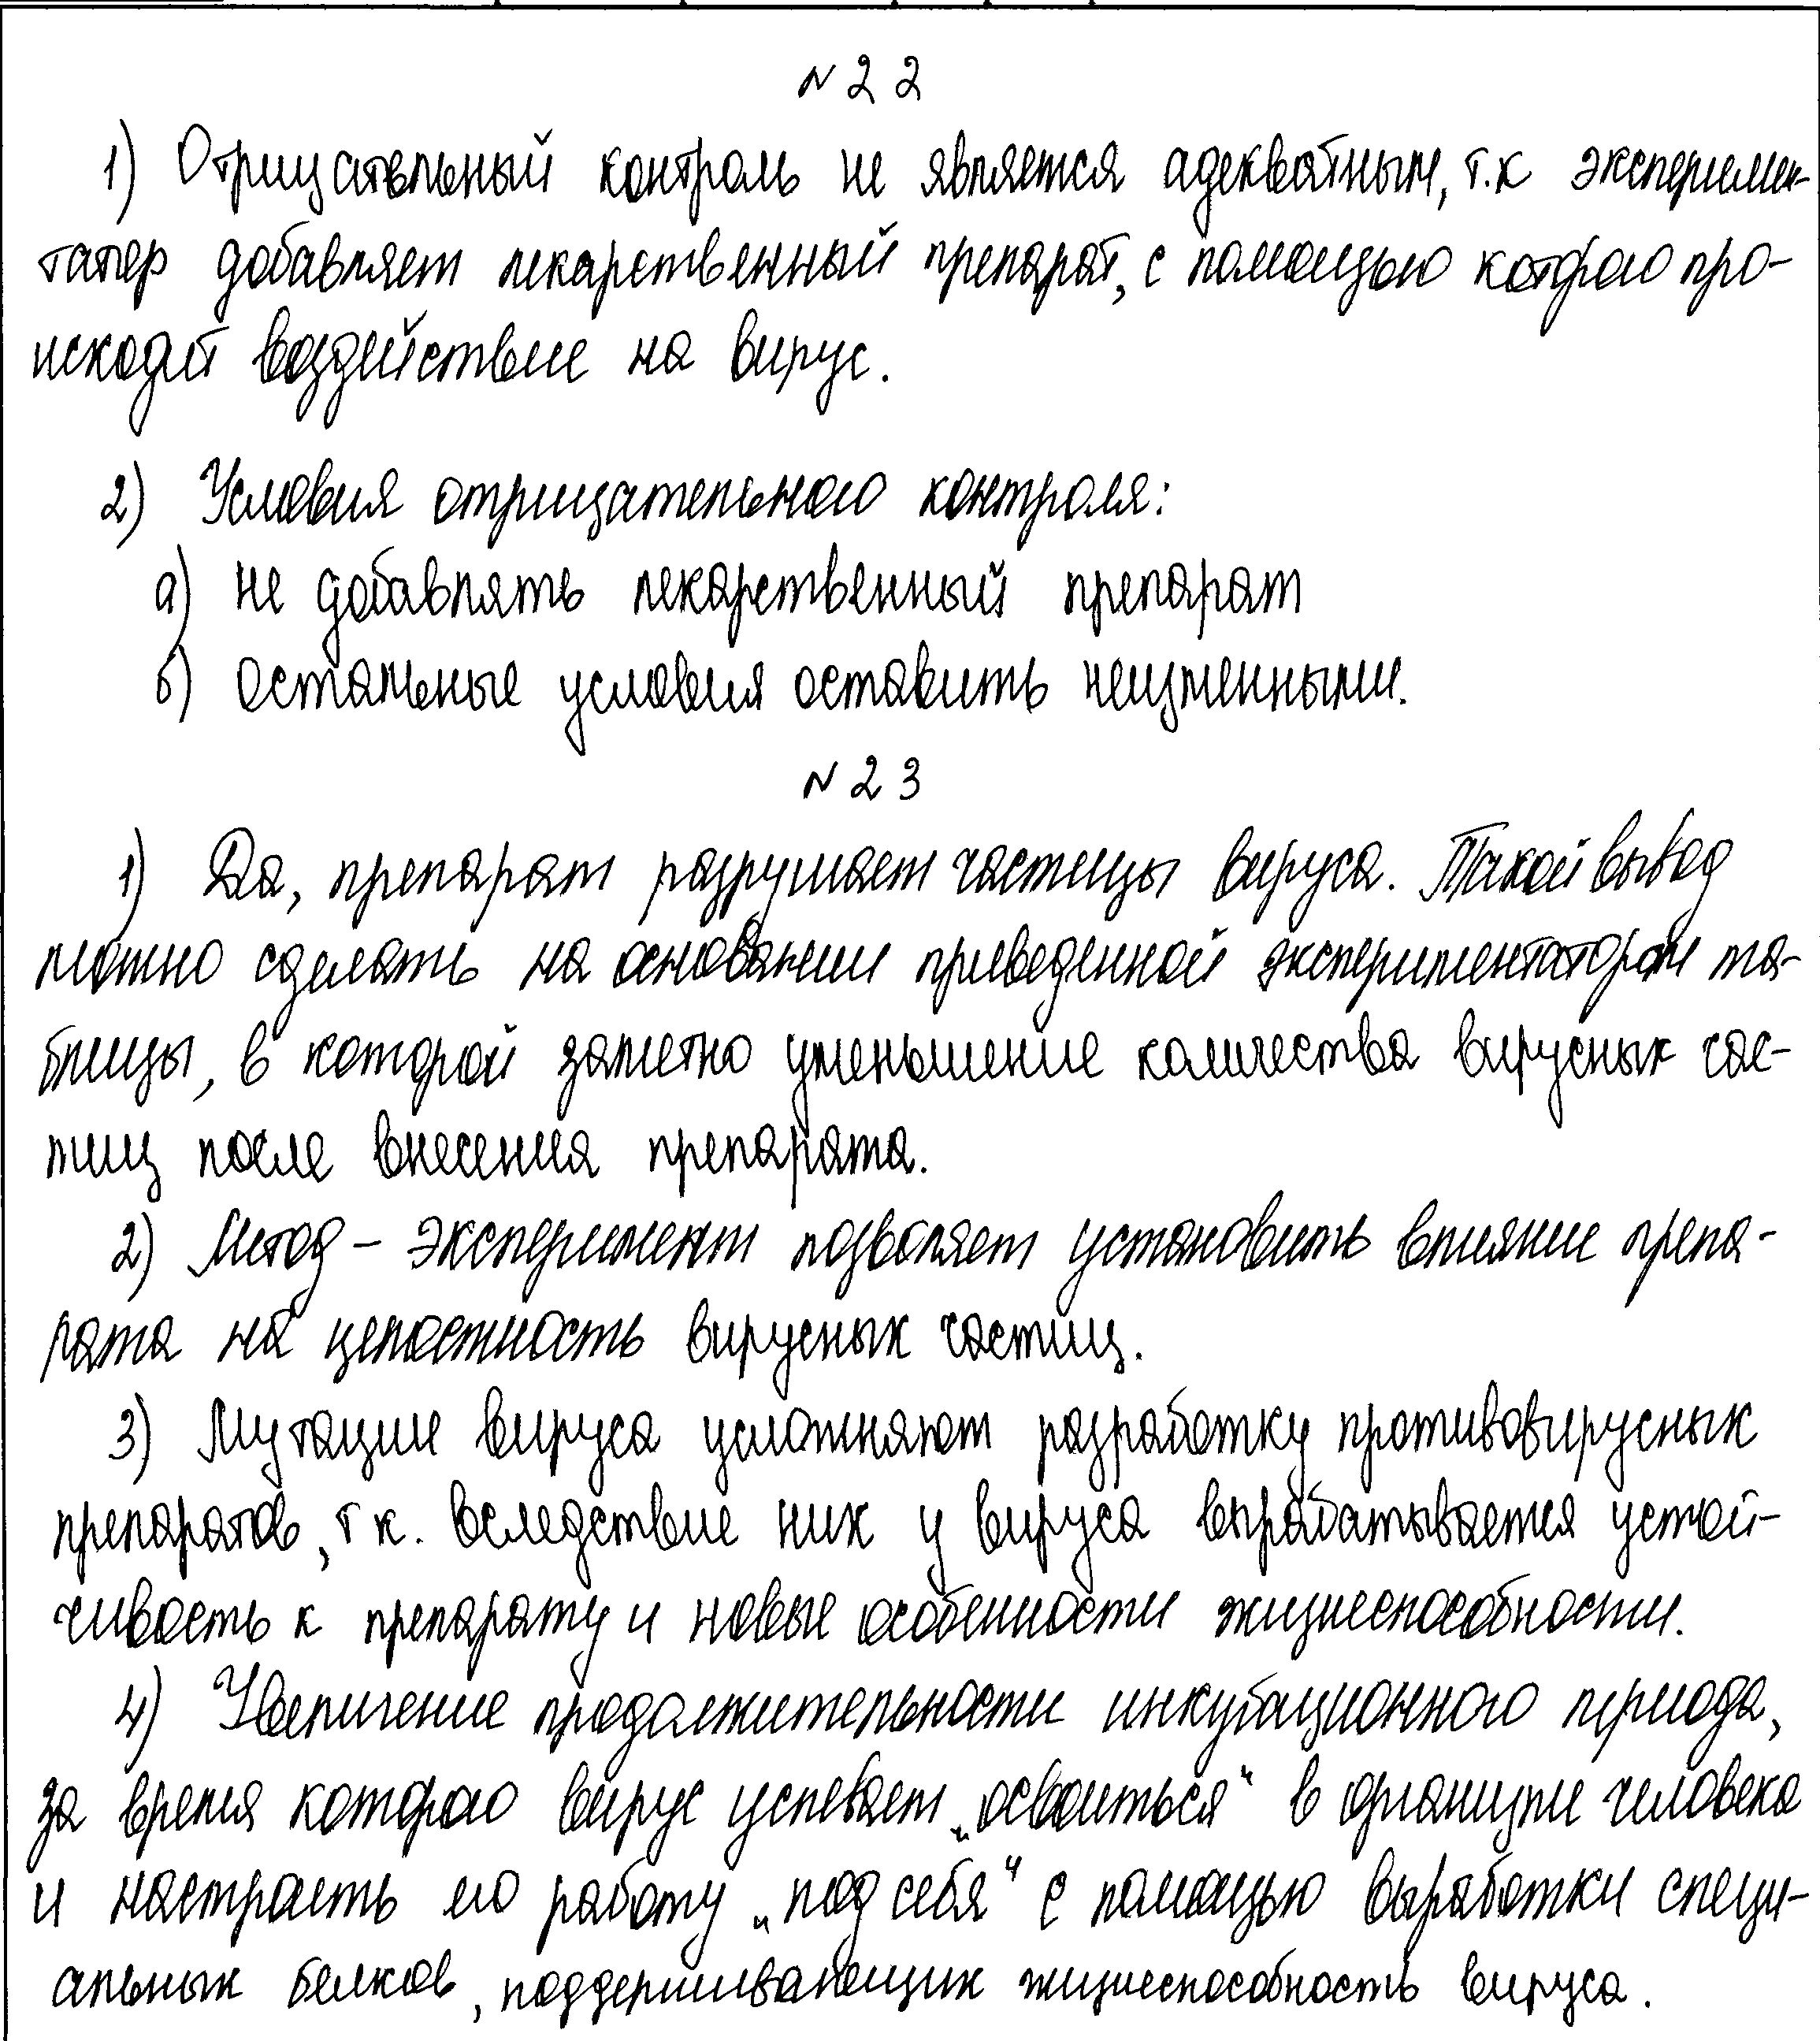 №22
1) Отрицательный контроль не является адекватным, т.к эксперимен-
татор добавляет лекарственный препарат, с помощью которого про-
исходит воздействие на вирус.
2) Условия отрицательного контроля:
а) не добавлять лекарственный препарат
б) остальные условия оставить неизменными.
№23
1) Да, препарат разрушает частицы вируса. Такой вывод
можно сделать на основании приведенной экспериментатором та-
блицы, в которой заметно уменьшение количества вирусных час-
тиц после внесения препарата.
2) Метод – эксперимент позволяет установить влияние препа-
рата на целостность вирусных частиц.
3) Мутации вируса усложняют разработку противовирусных
препаратов, т к. вследствие них у вируса вырабатывается устой-
чивость к препарату и новые особенности жизнеспособности.
4) Увеличение продолжительности инкубационного периода,
за время которого вирус успевает „освоиться“ в организме человека
и настроить его работу „под себя“ с помощью выработки специ-
альных белков, поддерживающих жизнеспособность вируса.